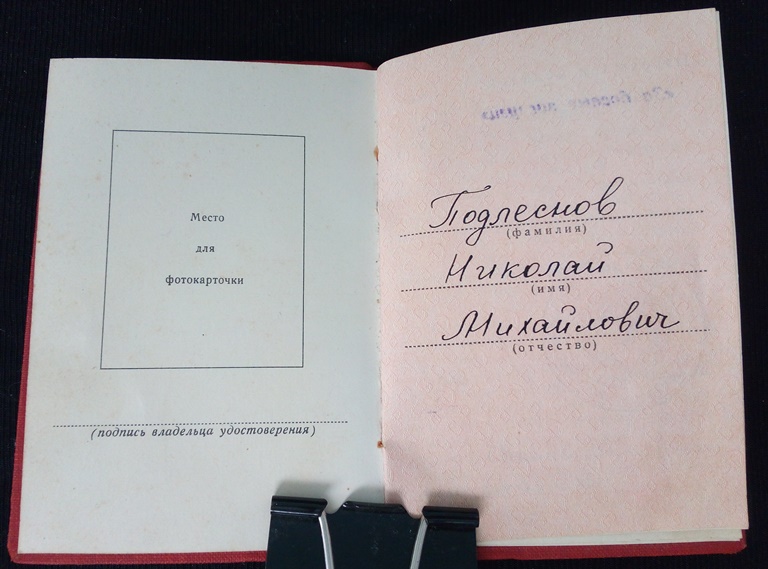 Место
для
фотокарточки
(подпись владельца удостоверения)
Подлеснов
(фамилия)
Николай
(имя)
Михайлович
(отчество)